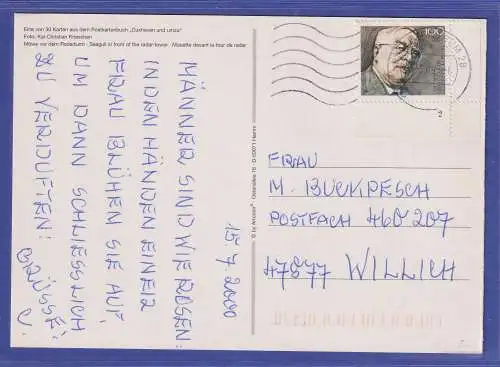 Eine von 30 Karten aus dem Postkartenbuch „Cuxhaven und umzu“
Foto: Kai Christian Krieschen
Möwe vor dem Radarturm · Seagull in front of the radar-tower · Mouette devant la tour de radar
MÄNNER SIND WIE ROSEN:
IN DEN HÄNDEN EINER
FRAU BLÜHEN SIE AUF,
UM DANN SCHLIESSLICH
ZU VERDUFTEN!
GRÜSSE
15.7.2000
100
2
FRAU
M. BUCKPESCH
POSTFACH 460 207
47877 WILLICH